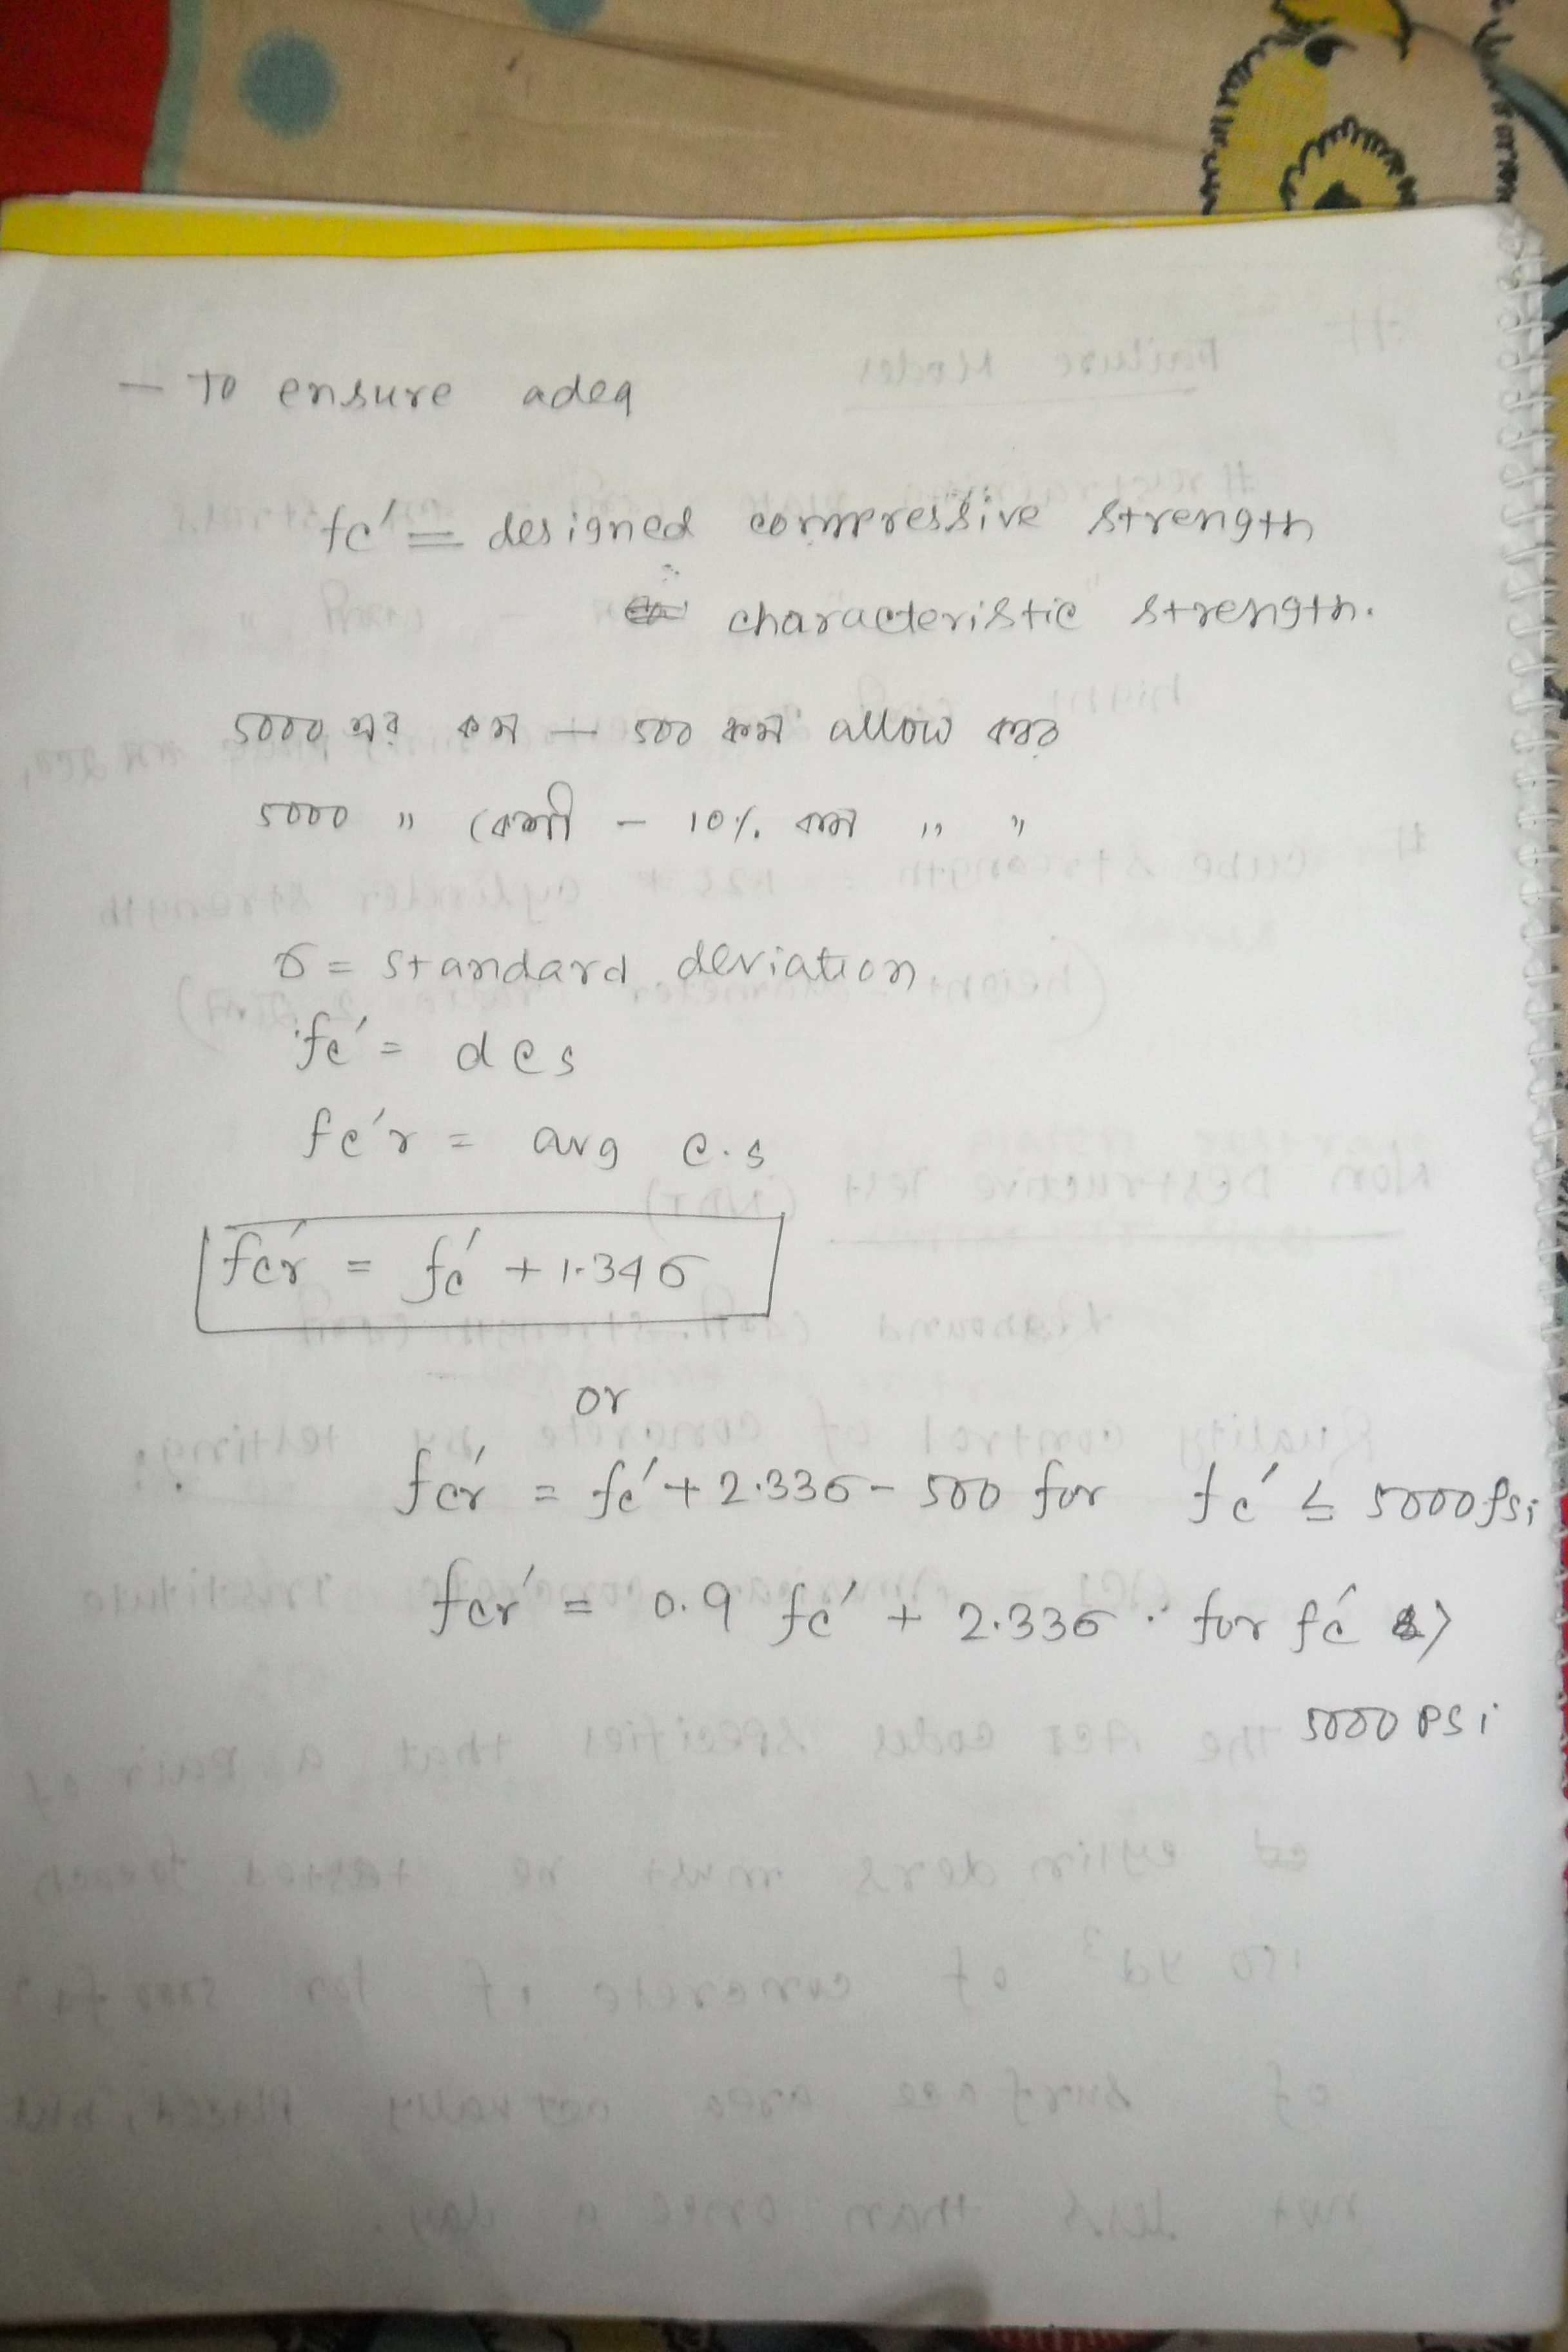 — To ensure adeq
fc' = designed compressive strength
characteristic strength.
5000 এর কম — 500 কম allow করে
5000 " বেশী - 10% কম " "
σ = standard deviation
fc' = des
fc'r = avg c.s
fcr' = fc' + 1.34σ
or
fcr' = fc' + 2.33σ - 500 for fc' ≤ 5000 psi
fcr' = 0.9 fc' + 2.33σ for fc' >
5000 psi